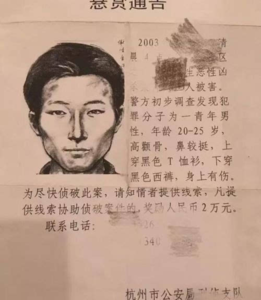 悬赏通告
2003
区
恶性凶
人被害。
警方初步调查发现犯
罪分子为一青年男
性，年龄 20-25 岁，
高颧骨，鼻较挺，上
穿黑色 T 恤衫，下穿
黑色西裤，身上有伤。
为尽快侦破此案，请知情者提供线索，凡提
供线索协助侦破案件的，奖励人民币 2 万元。
联系电话：
杭州市公安局
支队